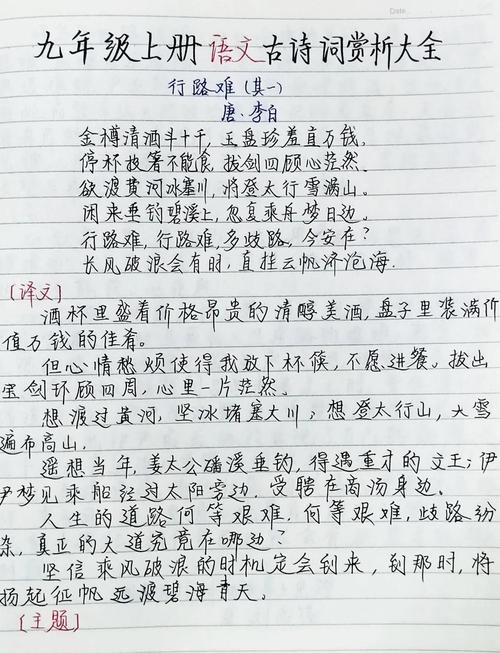 Date
九年级上册语文古诗词赏析大全
行路难(其一)
唐·李白
金樽清酒斗十千,玉盘珍羞直万钱。
停杯投箸不能食,拔剑四顾心茫然。
欲渡黄河冰塞川,将登太行雪满山。
闲来垂钓碧溪上,忽复乘舟梦日边。
行路难,行路难,多歧路,今安在?
长风破浪会有时,直挂云帆济沧海.
[译文]
酒杯里盛着价格昂贵的清醇美酒,盘子里装满价
值万钱的佳肴。
但心情愁烦使得我放下杯筷,不愿进餐。拔出
宝剑环顾四周,心里一片茫然。
想渡过黄河,坚冰堵塞大川;想登太行山,大雪
遍布高山.
遥想当年,姜太公磻溪垂钓,得遇重才的文王;伊
尹梦见乘船经过太阳旁边.受聘在商汤身边。
人生的道路何等艰难.何等艰难,歧路纷
杂,真正的大道究竟在哪边?
坚信乘风破浪的时机定会到来,到那时,将
扬起征帆远渡碧海青天。
[主题]